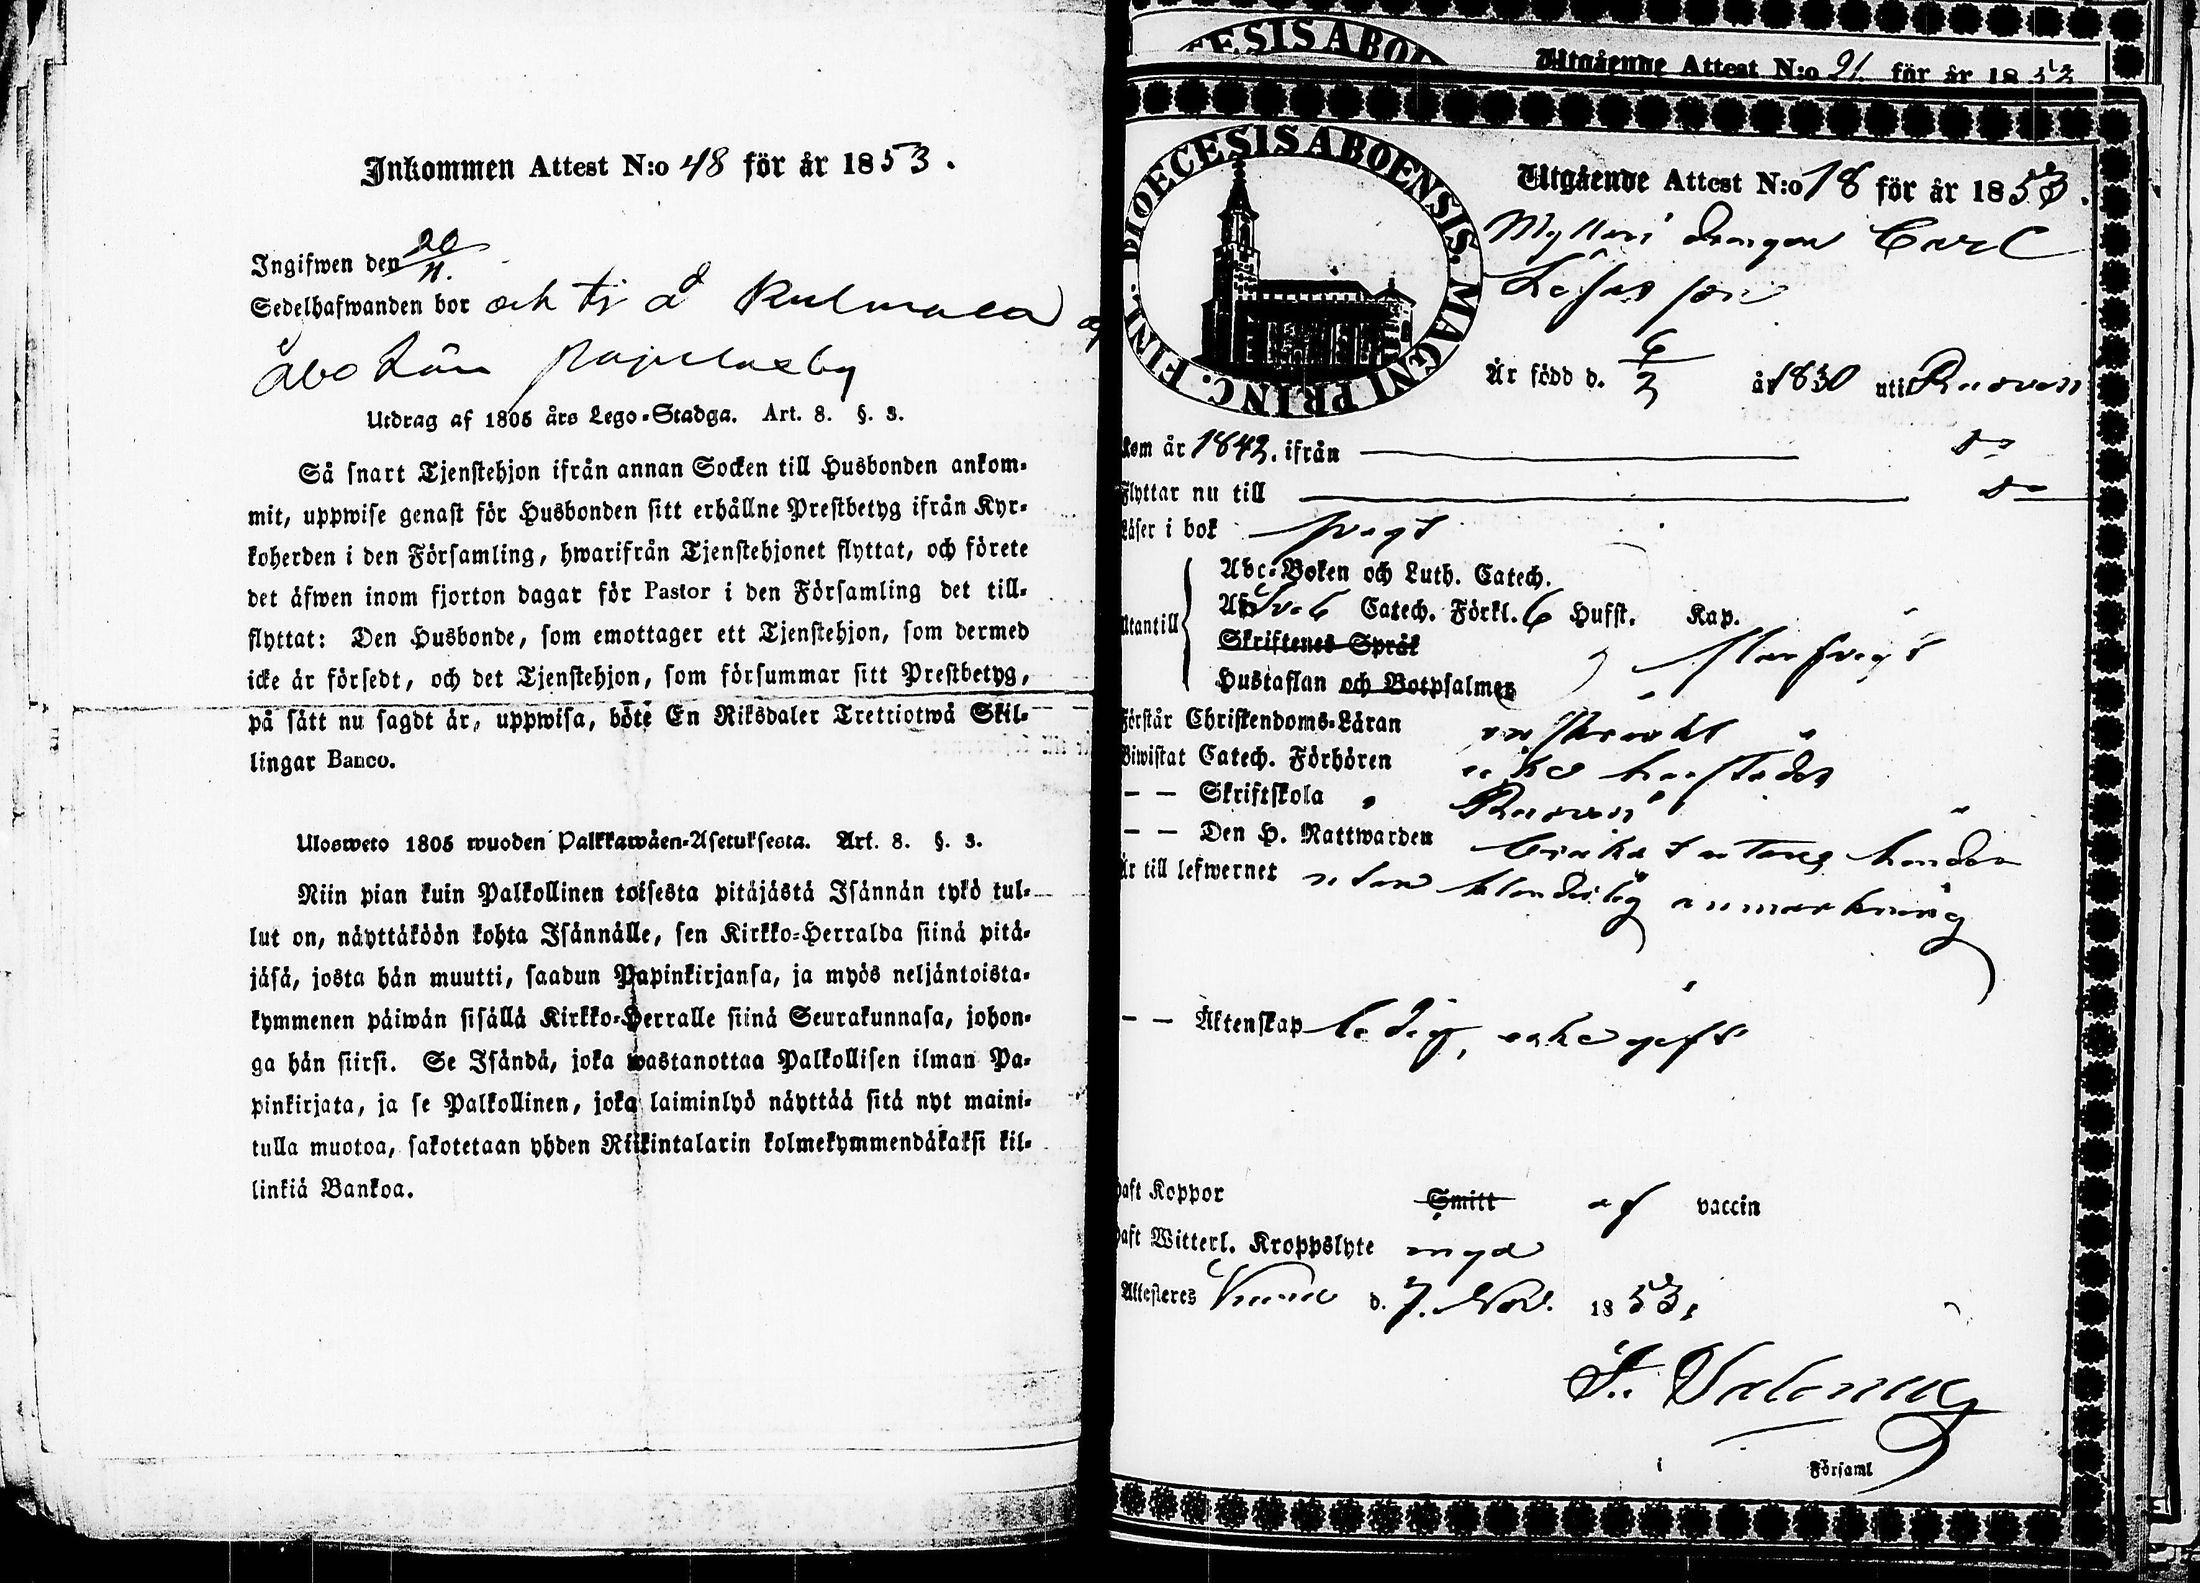 Inkommen Attest N:o 48 för år 1853.
Ingifwen den 20/11.
Sedelhafwanden bor och tj å Kulmala
åbo Län
Utdrag af 1805 års Lego-Stadga. Art. 8. §. 3.
Så snart Tjenstehjon ifrån annan Socken till Husbonden ankom-
mit, uppwise genast för Husbonden sitt erhållne Prestbetyg ifrån Kyr-
koherden i den Församling, hwarifrån Tjenstehjonet flyttat, och förete
det äfwen inom fjorton dagar för Pastor i den Församling det till-
flyttat: Den Husbonde, som emottager ett Tjenstehjon, som dermed
icke är försedt, och det Tjenstehjon, som försummar sitt Prestbetyg,
på sätt nu sagdt är, uppwisa, böte En Riksdaler Trettiotwå Skil-
lingar Banco.
Ulosweto 1805 wuoden Palkkawäen-Asetuksesta. Art. 8. §. 3.
Niin pian kuin Palkollinen toisesta pitäjästä Isännän tykö tul-
lut on, näyttäköön kohta Isännälle, sen Kirkko-Herralda siinä pitä-
jäsä, josta hän muutti, saadun Papinkirjansa, ja myös neljäntoista-
kymmenen päiwän sisällä Kirkko-Herralle siinä Seurakunnasa, johon-
ga hän siirsi. Se Isändä, joka wastanottaa Palkollisen ilman Pa-
pinkirjata, ja se Palkollinen, joka laiminlyö näyttää sitä nyt maini-
tulla muotoa, sakotetaan yhden Riikintalarin kolmekymmendäkaksi kil-
linkiä Bankoa.
Utgående Attest N:o 21 för år 1853
DIOECESIS ABOENSIS. MAGNI PRINC. FINL.
Utgående Attest N:o 18 för år 1853.
drengen Carl
Är född d. 6/3 år 1830 uti
kom år 1842. ifrån
Flyttar nu till
Läser i bok svagt
Utantill
Abc-Boken och Luth. Catech.
Catech. Förkl. 6 Hufst. Kap.
Skriftenes Språk
Hustaflan och Botpsalmer
Förstår Christendoms-Läran
Biwistat Catech. Förhören
— — Skriftskola
— — Den H. Nattwarden
Är till lefwernet utan klanderlig anmärkning
— — Äktenskap ledig, icke gift
haft Koppor Smitt af vaccin
haft Witterl. Kroppslyte
Attesteres d. 7. Nov. 1853,
i Församl